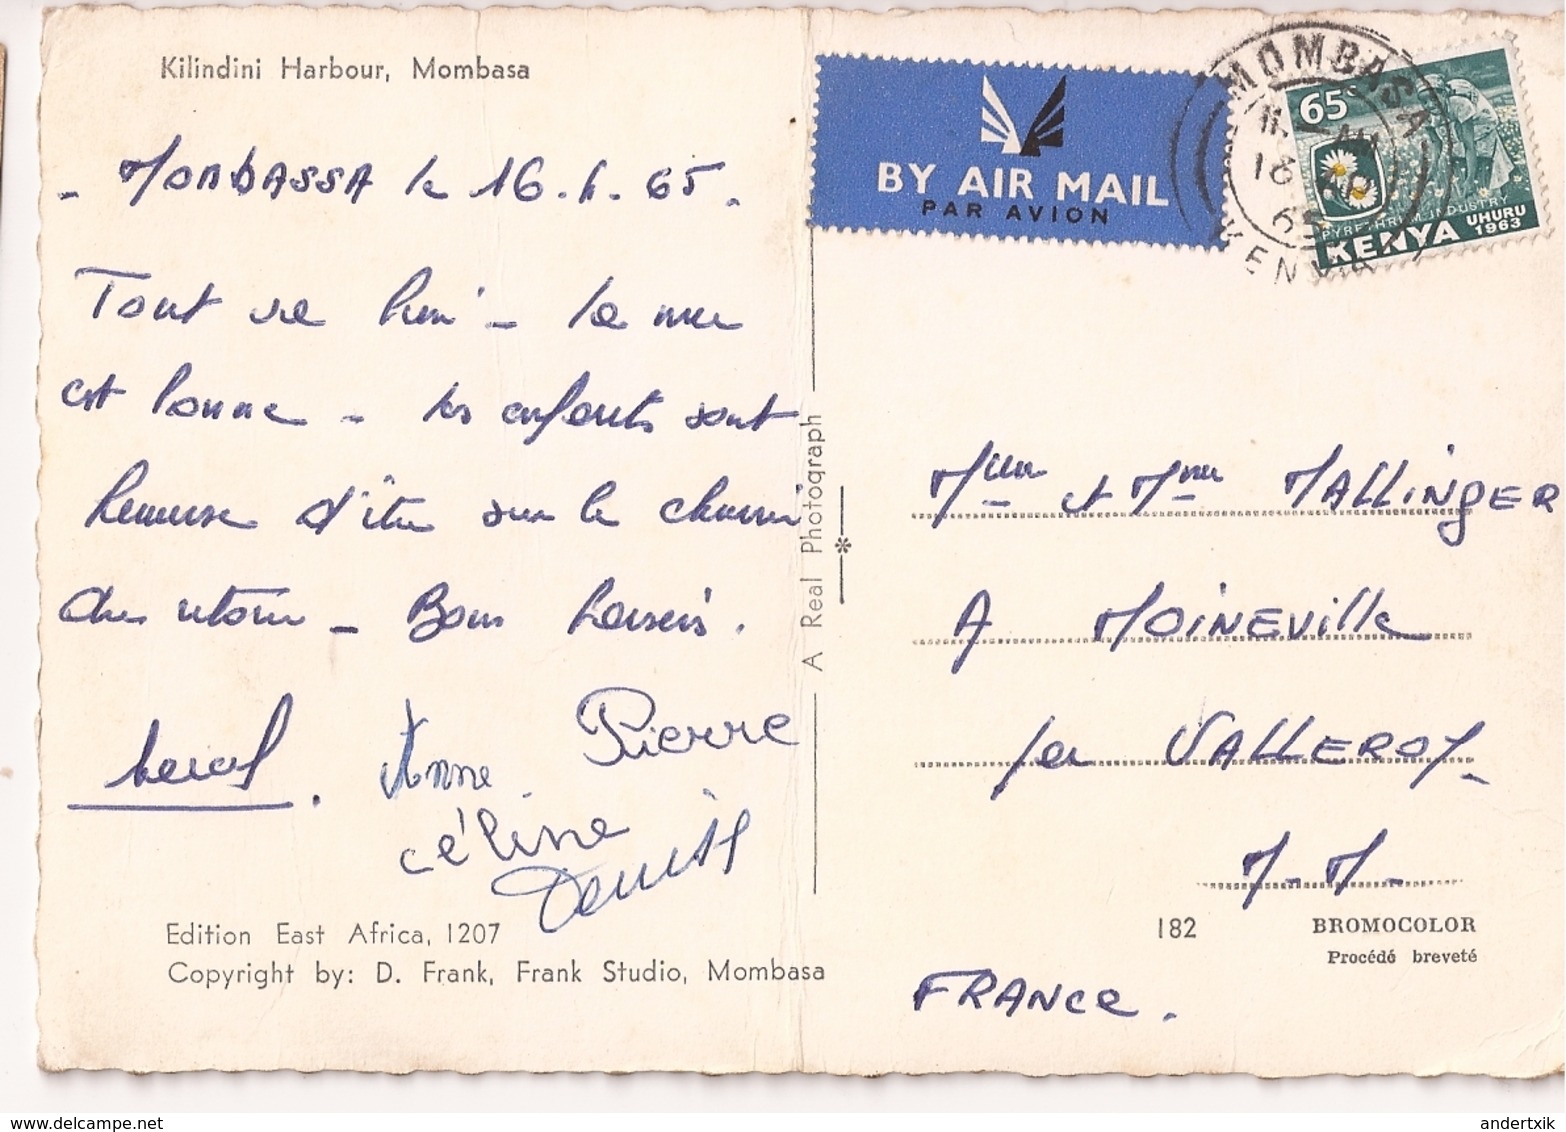 Kilindini Harbour, Mombasa
- MOMBASSA le 16.6.65.
Tout va bien - la mer
est bonne - les enfants sont
heureux d'être sur le chemin
du retour - Bons baisers.
Anne Pierre
céline
Denis
Edition East Africa, 1207
Copyright by: D. Frank, Frank Studio, Mombasa
A Real Photograph
BY AIR MAIL
PAR AVION
MOMBASA
65
KENYA
65
PYRETHRUM INDUSTRY
KENYA UHURU
1963
et Mme MALLINGER
A MOINEVILLE
par VALLEROY -
M-M-
182 BROMOCOLOR
Procédé breveté
FRANCE.
andertxik